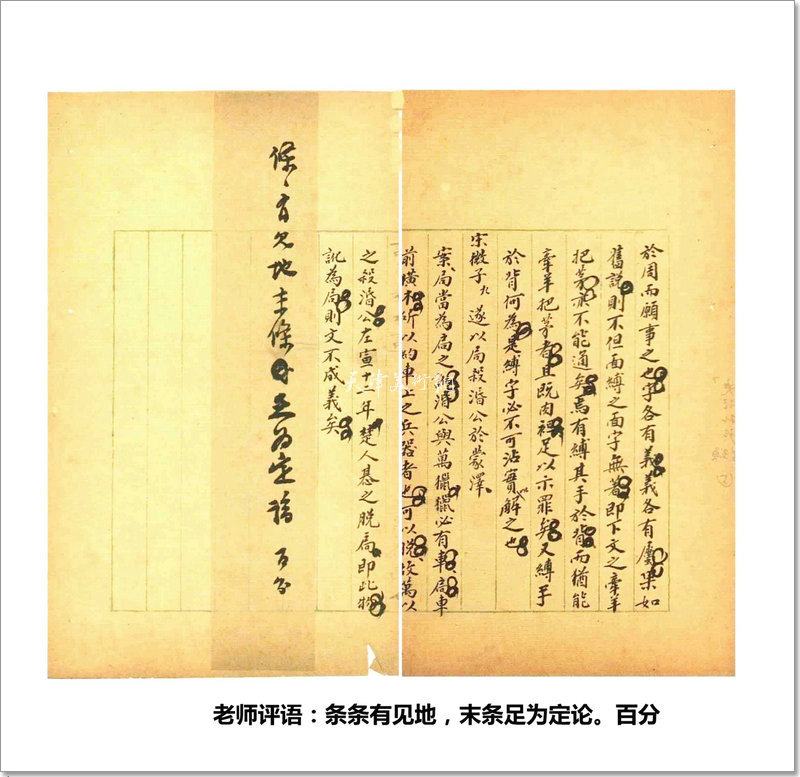 於周而願事之也字各有義義各有屬果如
舊說則不但面縛之面字無著即下文之牽羊
把茅亦不能通矣焉有縛其手於背而猶能
牽羊把茅者且既肉袒足以示罪矣又縛手
於背何為是縛字必不可沾實解之也
宋微子 遂以局殺湣公於蒙澤
案局當為扃之 湣公與萬獵獵必有車扃車
前橫木所以約車上之兵器者也可以脫故萬以
之殺湣公左宣十二年楚人惎之脫扃即此物
訛為局則文不成義矣
條々有見地末條足為定論 百分
天津美術網
老师评语：条条有见地，末条足为定论。百分